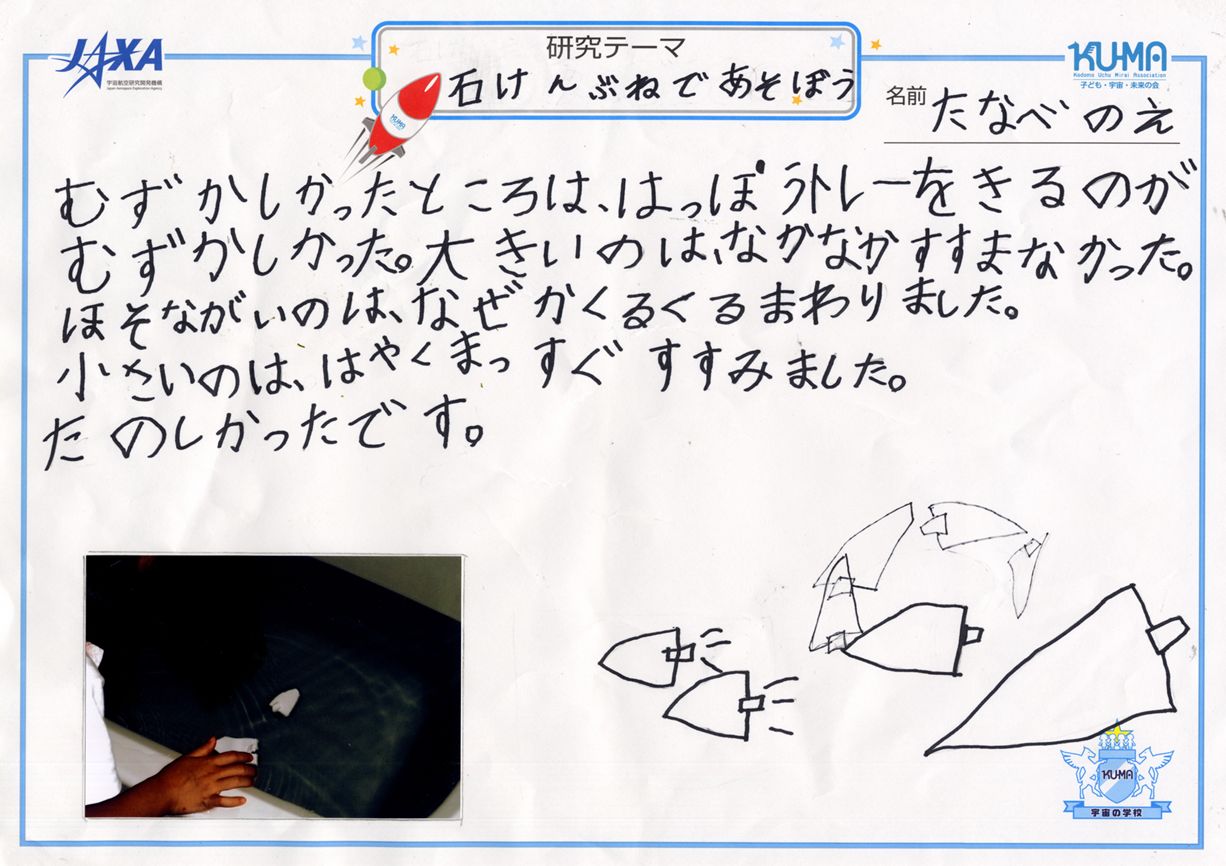 JAXA
宇宙航空研究開発機構
Japan Aerospace Exploration Agency
研究テーマ
石けんぶねであそぼう
KUMA
KUMA
Kodomo Uchu Mirai Association
子ども・宇宙・未来の会
名前 たなべ のえ
むずかしかったところは、はっぽうトレーをきるのが
むずかしかった。大きいのは、なかなかすすまなかった。
ほそながいのは、なぜかくるくるまわりました。
小さいのは、はやくまっすぐすすみました。
たのしかったです。
KUMA
宇宙の学校